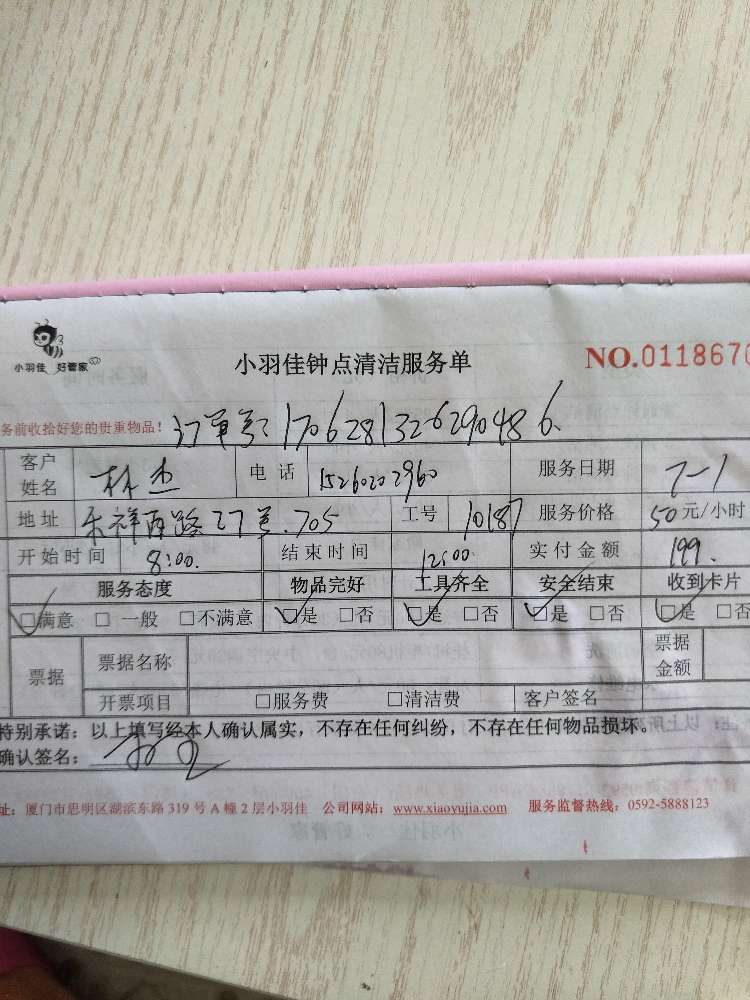 小羽佳 好管家
小羽佳钟点清洁服务单
NO.0118670
务前收拾好您的贵重物品! 订单号:170628132629048 6
客户姓名 林杰 电话 15260202960 服务日期 7-1
地址 乐祥南路27号.705 工号 10187 服务价格 50元/小时
开始时间 8:00. 结束时间 12:00 实付金额 199.
服务态度 物品完好 工具齐全 安全结束 收到卡片
□满意 □一般 □不满意 □是 □否 □是 □否 □是 □否 □是 □否
票据 票据名称 票据金额
开票项目 □服务费 □清洁费 客户签名
特别承诺:以上填写经本人确认属实,不存在任何纠纷,不存在任何物品损坏。
确认签名:
址:厦门市思明区湖滨东路319号A幢2层小羽佳 公司网站:www.xiaoyujia.com 服务监督热线:0592-5888123